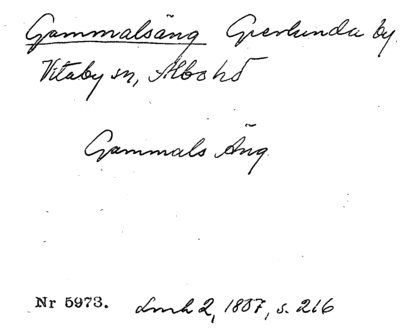 Gammalsäng Grevlunda by.
Vitaby sn, Albo hd
Gammals Äng
Nr 5973. Lmh 2, 1807, s. 216